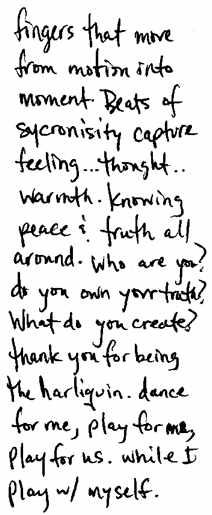 fingers that move
from motion into
moment. Beats of
sycronisity capture
feeling...thought..
warmth. knowing
peace & truth all
around. who are you?
do you own your truth?
What do you create?
thank you for being
the harliquin. dance
for me, play for me,
play for us. while I
play w/ myself.